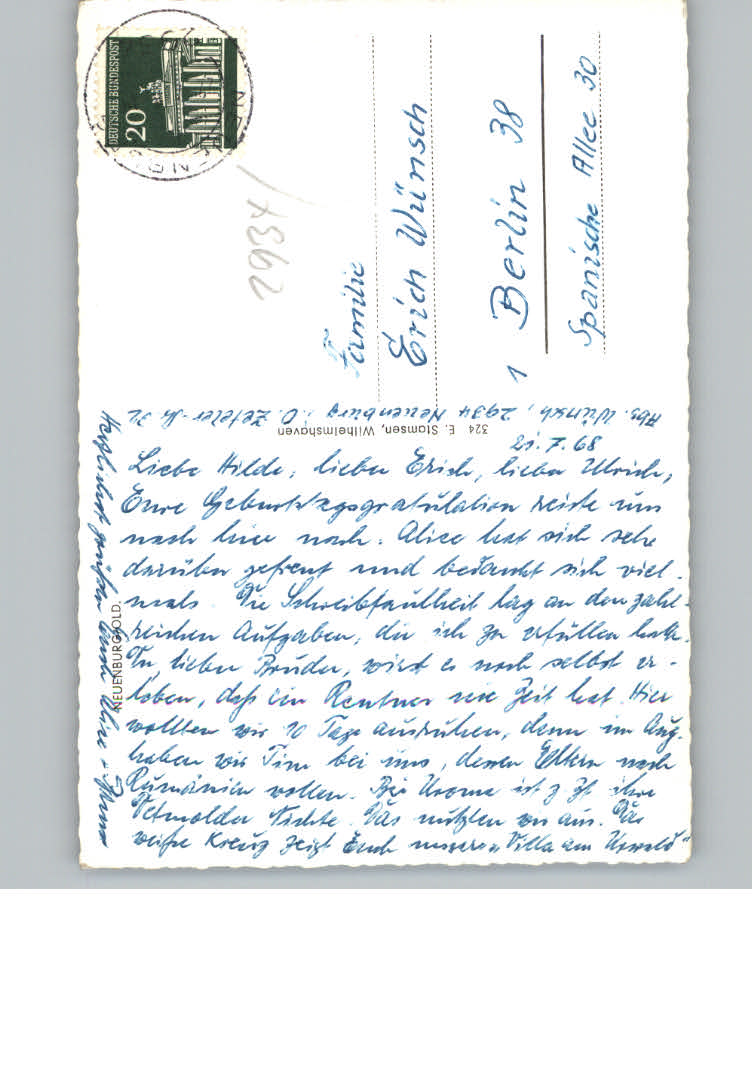 DEUTSCHE BUNDESPOST
20
7392
Familie
Erich Wünsch
1 Berlin 38
Spanische Allee 30
Abs. Wünsch, 2934 Neuenburg i. O. Zeteler-Str 32
324 E. Stamsen, Wilhelmshaven
NEUENBURG/OLD.
21.7.68
Liebe Hilde, lieber Erich, lieber Ulrich,
Eure Geburtstagsgratulation reiste uns
nach hier nach. Alice hat sich sehr
darüber gefreut und bedankt sich viel-
mals. Die Schreibfaulheit lag an den zahl-
reichen Aufgaben, die ich zu erfüllen hatte.
Du, lieber Bruder, wirst es noch selbst er-
leben, daß ein Rentner nie Zeit hat. Hier
wollten wir 10 Tage ausruhen, denn im Aug.
haben wir Tim bei uns, dessen Eltern nach
Rumänien wollen. Bei Uroma ist z. Zt. ihre
Detmolder Nichte. Das nutzten wir aus. Das
weiße Kreuz zeigt Euch unsere "Villa am Urwald"
Herzlichst grüßen Euch Alice +